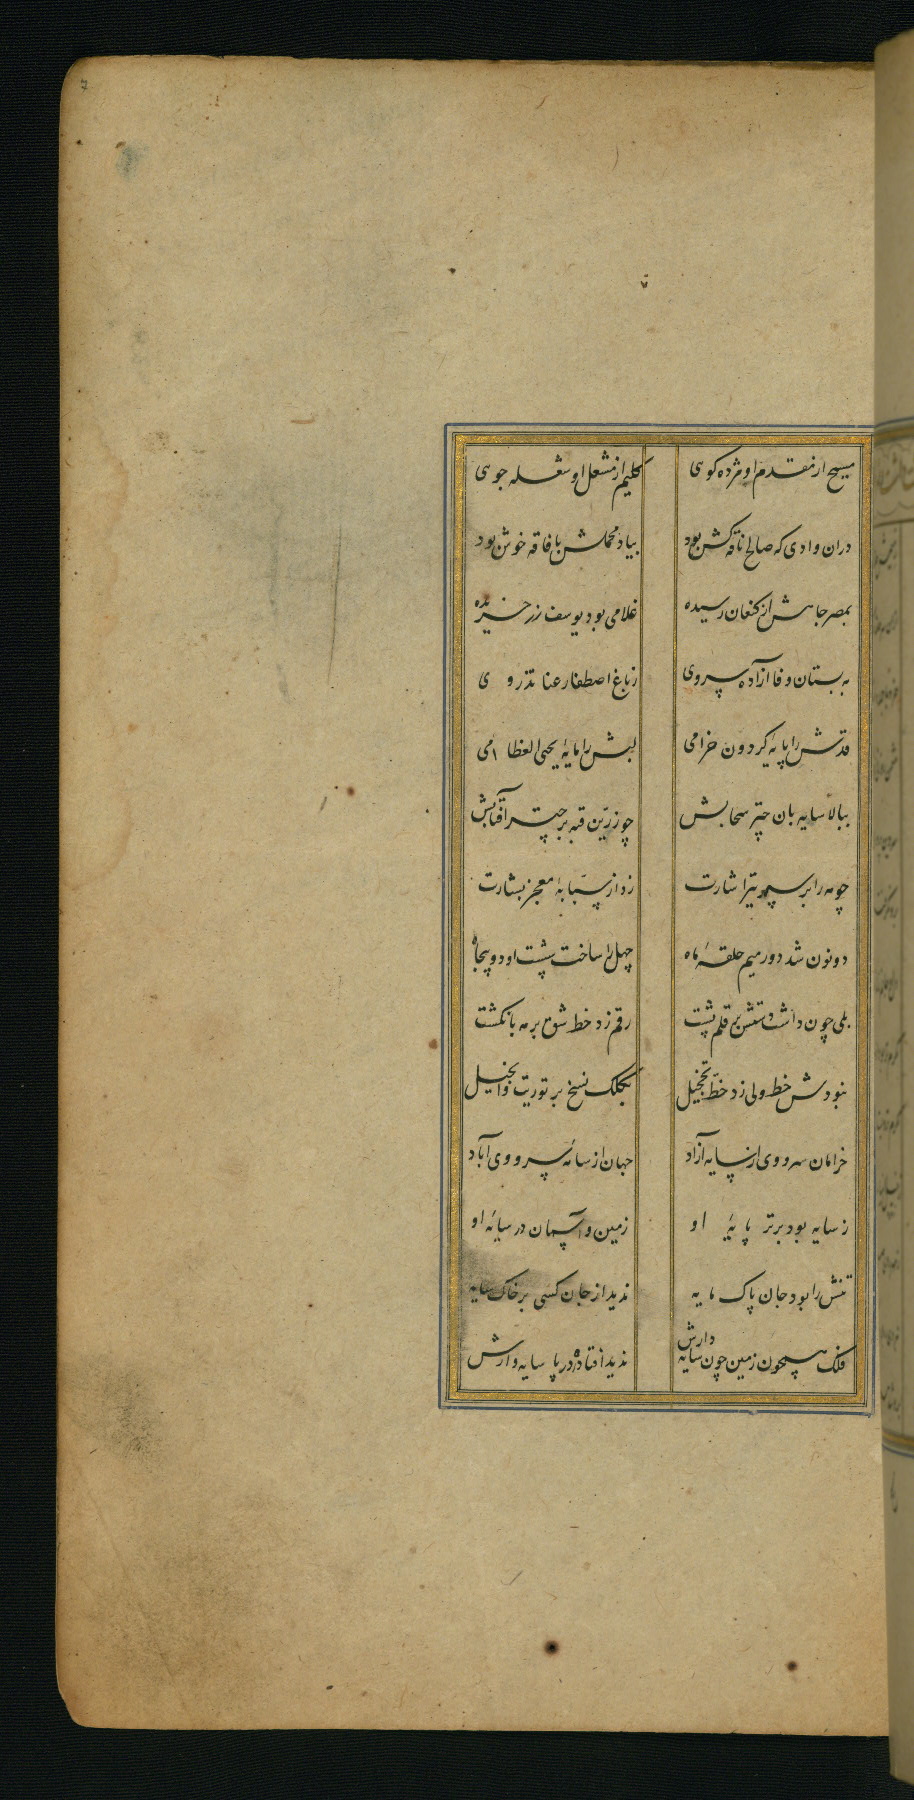 ۷
مسیح از مقدم او مژده کوی کلیم از مشعل او شعله جوی
دران وادی که صالح ناقه کش بود بیاد محملش با فاقه خوش بود
بمصر جاهش از کنعان رسیده غلامی بود یوسف زر خریده
به بستان وفا آزاده سروی ز باغ اصطفا رعنا تذروی
قدش را پایهٔ کردون خرامی لبش را مایهٔ یحیی العظامی
ببالا سایه بان چتر سحابش چو زرین قبه بر چتر آفتابش
چو مه را بر سپهر تیر اشارت زد از سبابهٔ معجز بشارت
دو نون شد دور میم حلقهٔ ماه چهل را ساخت پشت او دو پنجاه
بلی چون داشت دستش بر قلم پشت رقم زد خط شق بر مه بانکشت
نبودش خط ولی زد خط تخجیل بکلک نسخ بر توریت و انجیل
خرامان سروی از سایه آزاد جهان از سایهٔ سروی آباد
ز سایه بود برتر پایهٔ او زمین و آسمان در سایهٔ او
تنش را بود جان پاک مایه ندید از جان کسی بر خاک سایه
فلک همچون زمین چون سایه دارش ندید افتاده در پا سایه وارش